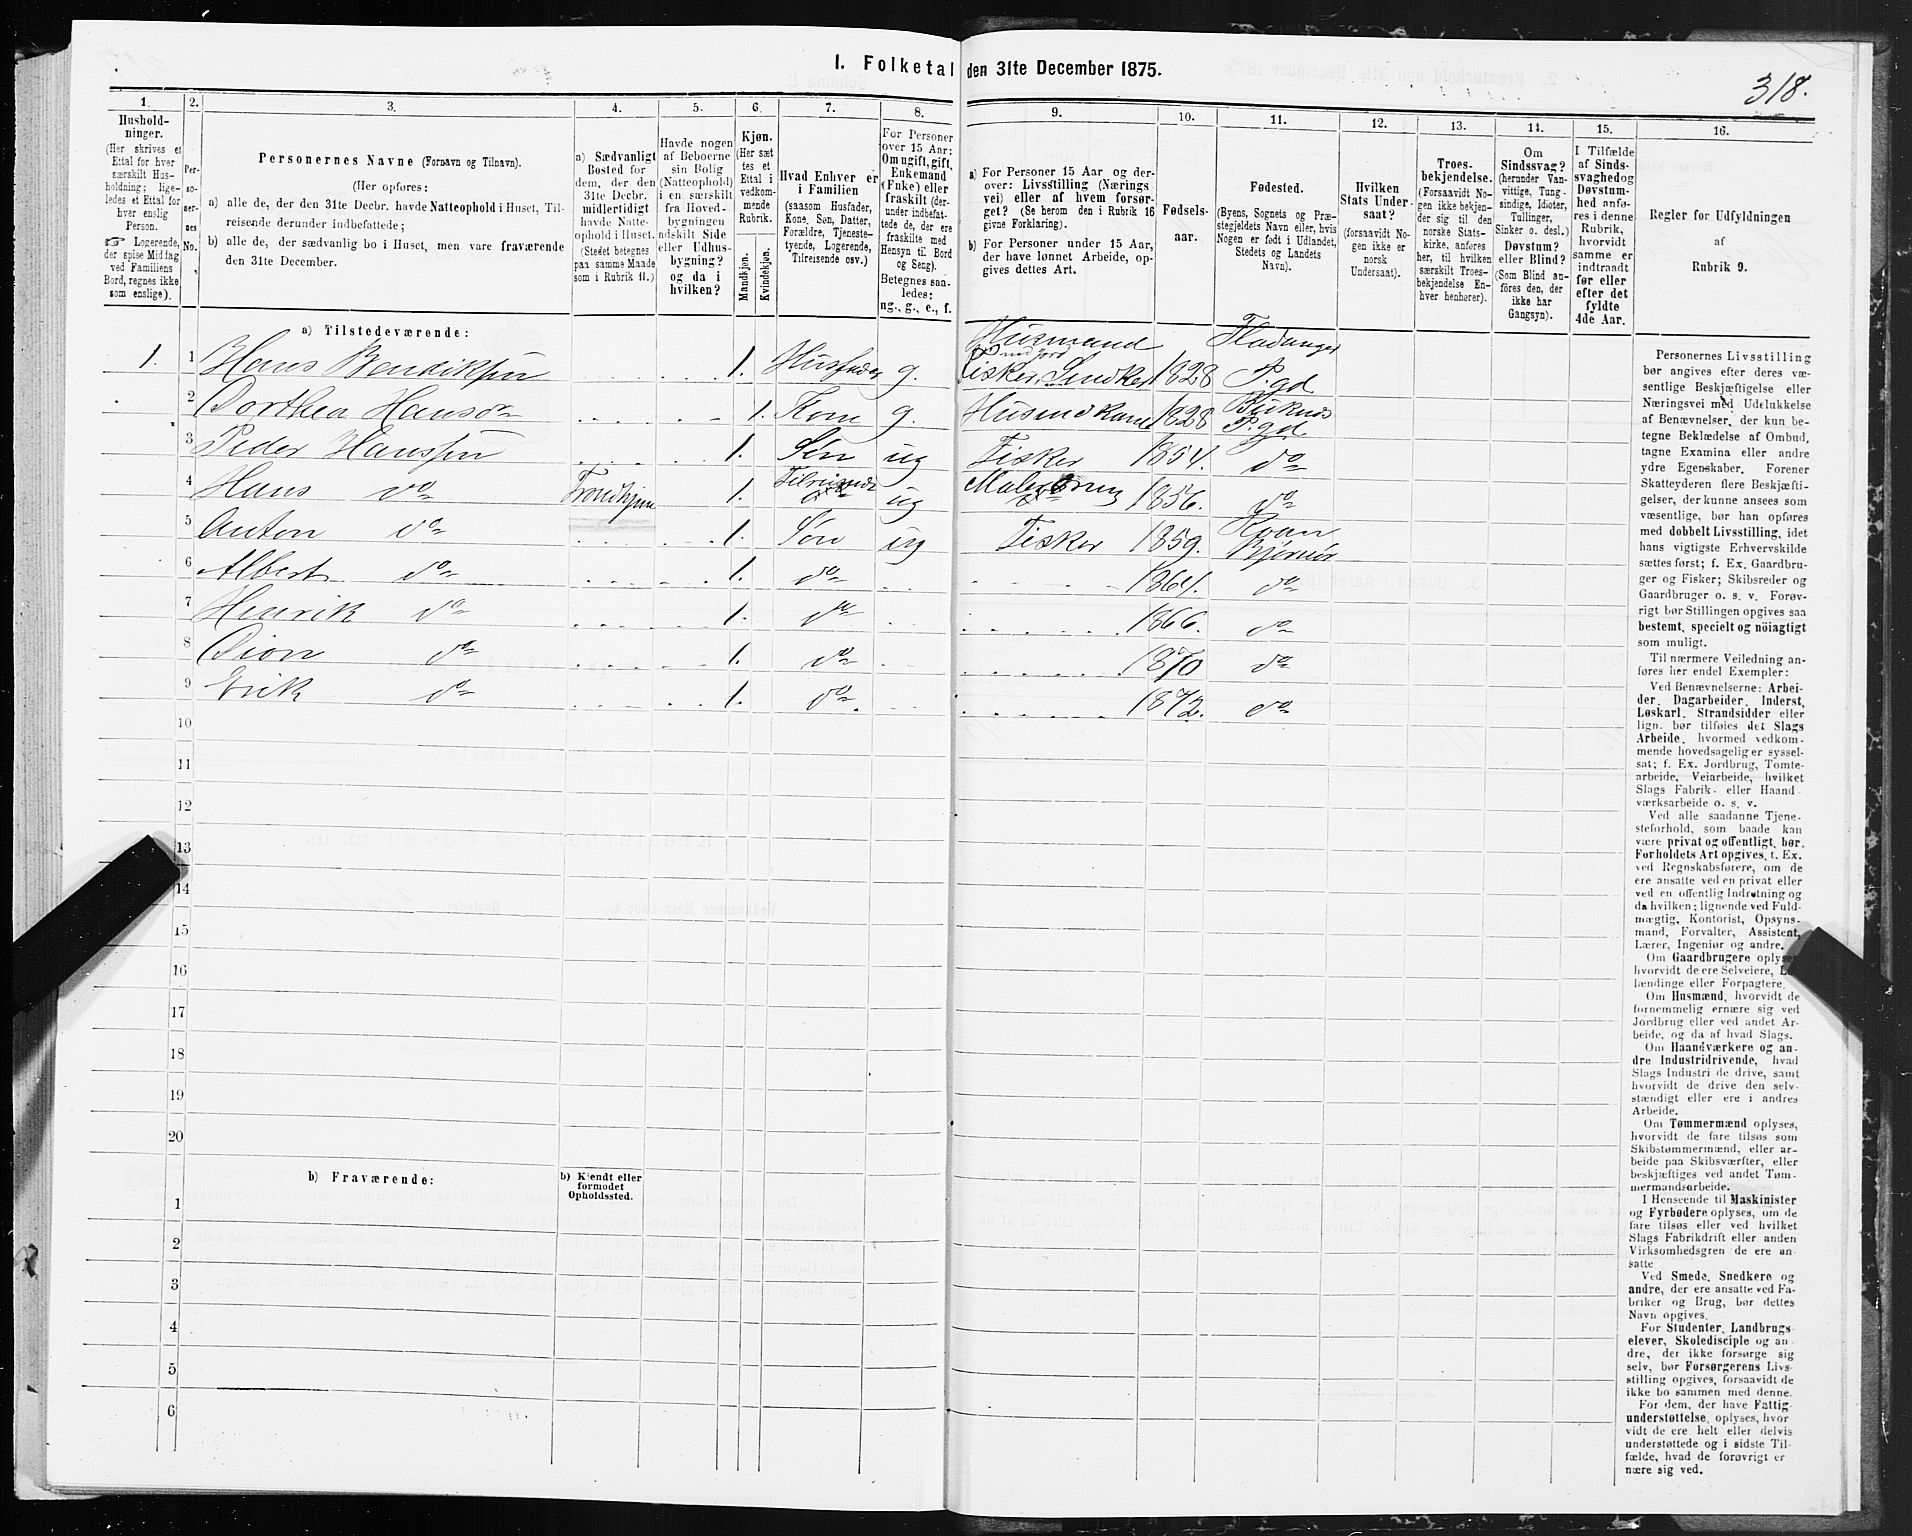 1. Folketal den 31te December 1875.
318.
1.
2.
3.
4.
5.
6.
7.
8.
9.
10.
11.
12.
13.
14.
15.
16.
Hushold-
ninger.
(Her skrives et
Ettal for hver
særskilt Hus-
holdning; lige-
ledes et Ettal for
hver enslig
Person.
☞ Logerende,
der spise Middag
ved Familiens
Bord, regnes ikke
som enslige).
Per-
so-
ner-
nes
No.
Personernes Navne (Fornavn og Tilnavn).
(Her opføres:
a) alle de, der den 31te Decbr. havde Natteophold i Huset, Til-
reisende derunder indbefattede;
b) alle de, der sædvanlig bo i Huset, men vare fraværende
den 31te December.
a) Sædvanligt
Bosted for
dem, der den
31te Decbr.
midlertidigt
havde Natte-
ophold i Huset.
(Stedet betegnes
paa samme Maade
som i Rubrik 11.)
Havde nogen
af Beboerne
sin Bolig
(Natteophold)
i en særskilt
fra Hoved-
bygningen
adskilt Side
eller Udhus-
bygning?
og da i
hvilken?
Kjøn.
(Her sæt
tes et
Ettal i
vedkom-
mende
Rubrik.
Mandkjøn.
Kvindekjøn.
Hvad Enhver er
i Familien
(saasom Husfader,
Kone, Søn, Datter,
Forældre, Tjeneste-
tyende, Logerende,
Tilreisende osv.)
For Personer
over 15 Aar:
Om ugift, gift,
Enkemand
(Enke) eller
fraskilt (der-
under indbefat-
tede de, der ere
fraskilte med
Hensyn til Bord
og Seng).
Betegnes saa-
ledes:
ug., g., e., f.
a) For Personer 15 Aar og der-
over: Livsstilling (Nærings
vei) eller af hvem forsør-
get? (Se herom den i Rubrik 16
givne Forklaring).
b) For Personer under 15 Aar,
der have lønnet Arbeide, op-
gives dettes Art.
Fødsels-
aar.
Fødested.
(Byens, Sognets og Præ-
stegjeldets Navn eller, hvis
Nogen er født i Udlandet,
Stedets og Landets
Navn).
Hvilken
Stats Under-
saat?
(forsaavidt No-
gen ikke er
norsk
Undersaat).
Troes-
bekjendelse.
(Forsaavidt No-
gen ikke bekjen-
der sig til den
norske Stats-
kirke, anføres
her, til hvilken
særskilt Troes-
bekjendelse En-
hver henhører).
Om
Sindssvag?
(herunder Van-
vittige, Tung-
sindige, Idioter,
Tullinger,
Sinker o. desl.)
Døvstum?
eller Blind?
(Som Blind an-
føres den, der
ikke har
Gangsyn).
I Tilfælde
af Sinds-
svaghedog
Døvstum-
hed anfø-
res i denne
Rubrik,
hvorvidt
samme er
indtraadt
før eller
efter det
fyldte
4de Aar.
Regler for Udfyldningen
af
Rubrik 9.
a) Tilstedeværende:
1. 1 Hans Bendiksen 1. Husfader g. Husmand med Jord Fisker, Snedker 1828 Fladanger P.gd
2 Dorthea Hansdr 1. Kone g. Husmdkone 1828 P.gd.
3 Peder Hanssen 1. Søn ug Fisker 1854. do
4 Hans do Trondhjem 1. Tilreisende ug 1856. do
5 Anton do 1. Søn ug Fisker 1859. Roan Bjørnør
6 Albert do 1. do 1864. do
7 Henrik do 1. do 1866. do
8 do 1. do 1870 do
9 Erik do 1. do. 1872. do
10
11
12
13
14
15
16
17
18
19
20
b) Fraværende:
b) Kjendt eller
formodet
Opholdssted.
1
2
3
4
5
6
Personernes Livsstilling
bør angives efter deres væ-
sentlige Beskjæftigelse eller
Næringsvei med Udelukkelse
af Benævnelser, der kun be-
tegne Beklædelse af Ombud,
tagne Examina eller andre
ydre Egenskaber. Forener
Skatteyderen flere Beskjæfti-
gelser, der kunne ansees som
væsentlige, bør han opføres
med dobbelt Livsstilling, idet
hans vigtigste Erhvervskilde
sættes først; f. Ex. Gaardbru-
ger og Fisker; Skibsreder og
Gaardbruger o. s. v. Forøv-
rigt bør Stillingen opgives saa
bestemt, specielt og nöiagtigt
som muligt.
Til nærmere Veiledning an-
føres her endel Exempler:
Ved Benævnelserne: Arbei-
der, Dagarbeider, Inderst,
Løskarl, Strandsidder eller
lign. bør tilføies det Slags
Arbeide, hvormed vedkom-
mende hovedsagelig er syssel-
sat; f. Ex. Jordbrug, Tomte-
arbeide, Veiarbeide, hvilket
Slags Fabrik- eller Haand
værksarbeide o. s. v.
Ved alle saadanne Tjene-
steforhold, som baade kan
være privat og offentligt, bør
Forholdets Art opgives, t. Ex.
ved Regnskabsførere, om de
ere ansatte ved en privat eller
ved en offentlig Indretning og
da hvilken; lignende ved Fuld-
mægtig, Kontorist, Opsyns-
mand, Forvalter, Assistent,
Lærer, Ingeniør og andre.
Om Gaardbrugere oplyses
hvorvidt de ere Selveiere, Le-
lændinge eller Forpagtere.
Om Husmænd, hvorvidt de
fornemmelig ernære sig ved
Jordbrug eller ved andet Ar-
beide, og da af hvad Slags.
Om Haandværkere og an-
dre Industridrivende, hvad
Slags Industri de drive, samt
hvorvidt de drive den selv-
stændigt eller ere i andres
Arbeide.
Om Tømmermænd oplyses,
hvorvidt de fare tilsøs som
Skibstømmermænd, eller ar-
beide paa Skibsværfter, eller
beskjæftiges ved andet Tøm-
mermandsarbeide.
I Henseende til Maskinister
og Fyrbødere oplyses, om de
fare tilsøs eller ved hvilket
Slags Fabrikdrift eller anden
Virksomhedsgren de ere an-
satte
Ved Smede, Snedkere og
andre, der ere ansatte ved Fa-
briker og Brug, bør dettes
Navn opgives.
For Studenter, Landbrugs-
elever, Skoledisciple og an-
dre, der ikke forsørge sig
selv, bør Forsørgerens Livs-
stilling opgives, forsaavidt de
ikke bo sammen med denne.
For dem, der have Fattig-
understøttelse, oplyses, hvor
vidt de ere helt eller delvis
understøttede og i sidste Til-
fælde, hvad de forøvrigt er
nære sig ved.